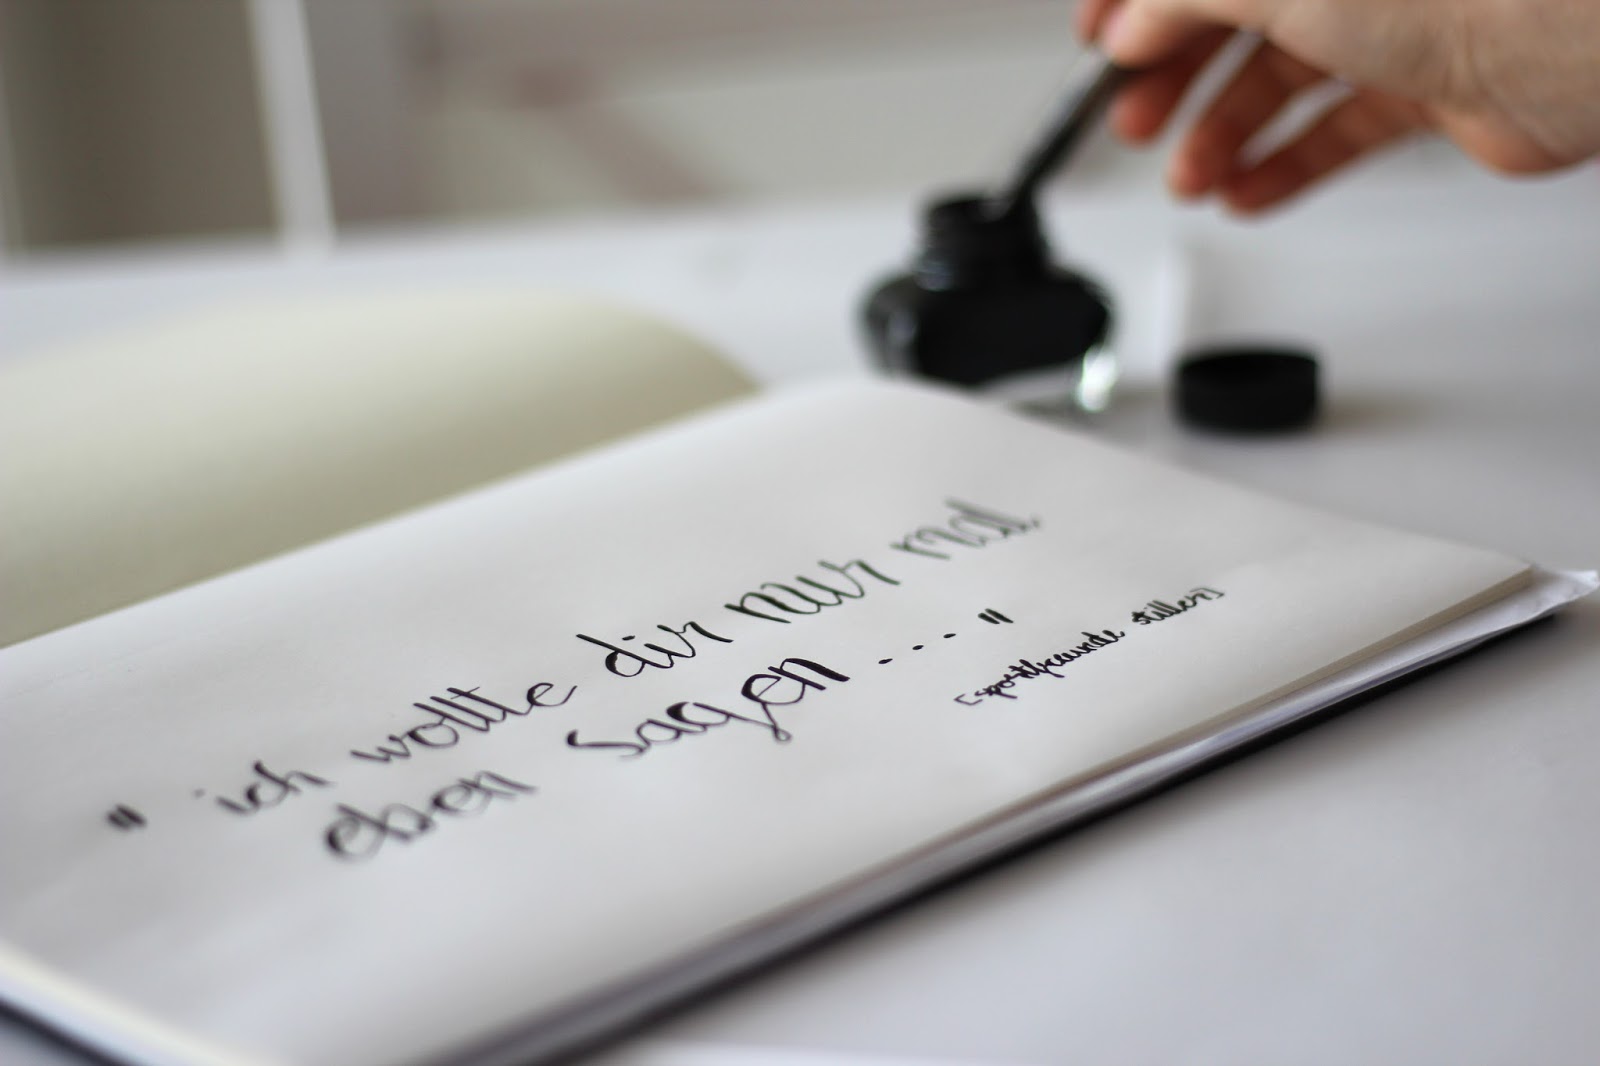 " ich wollte dir nur mal
eben sagen ... "
[sportfreunde stiller]